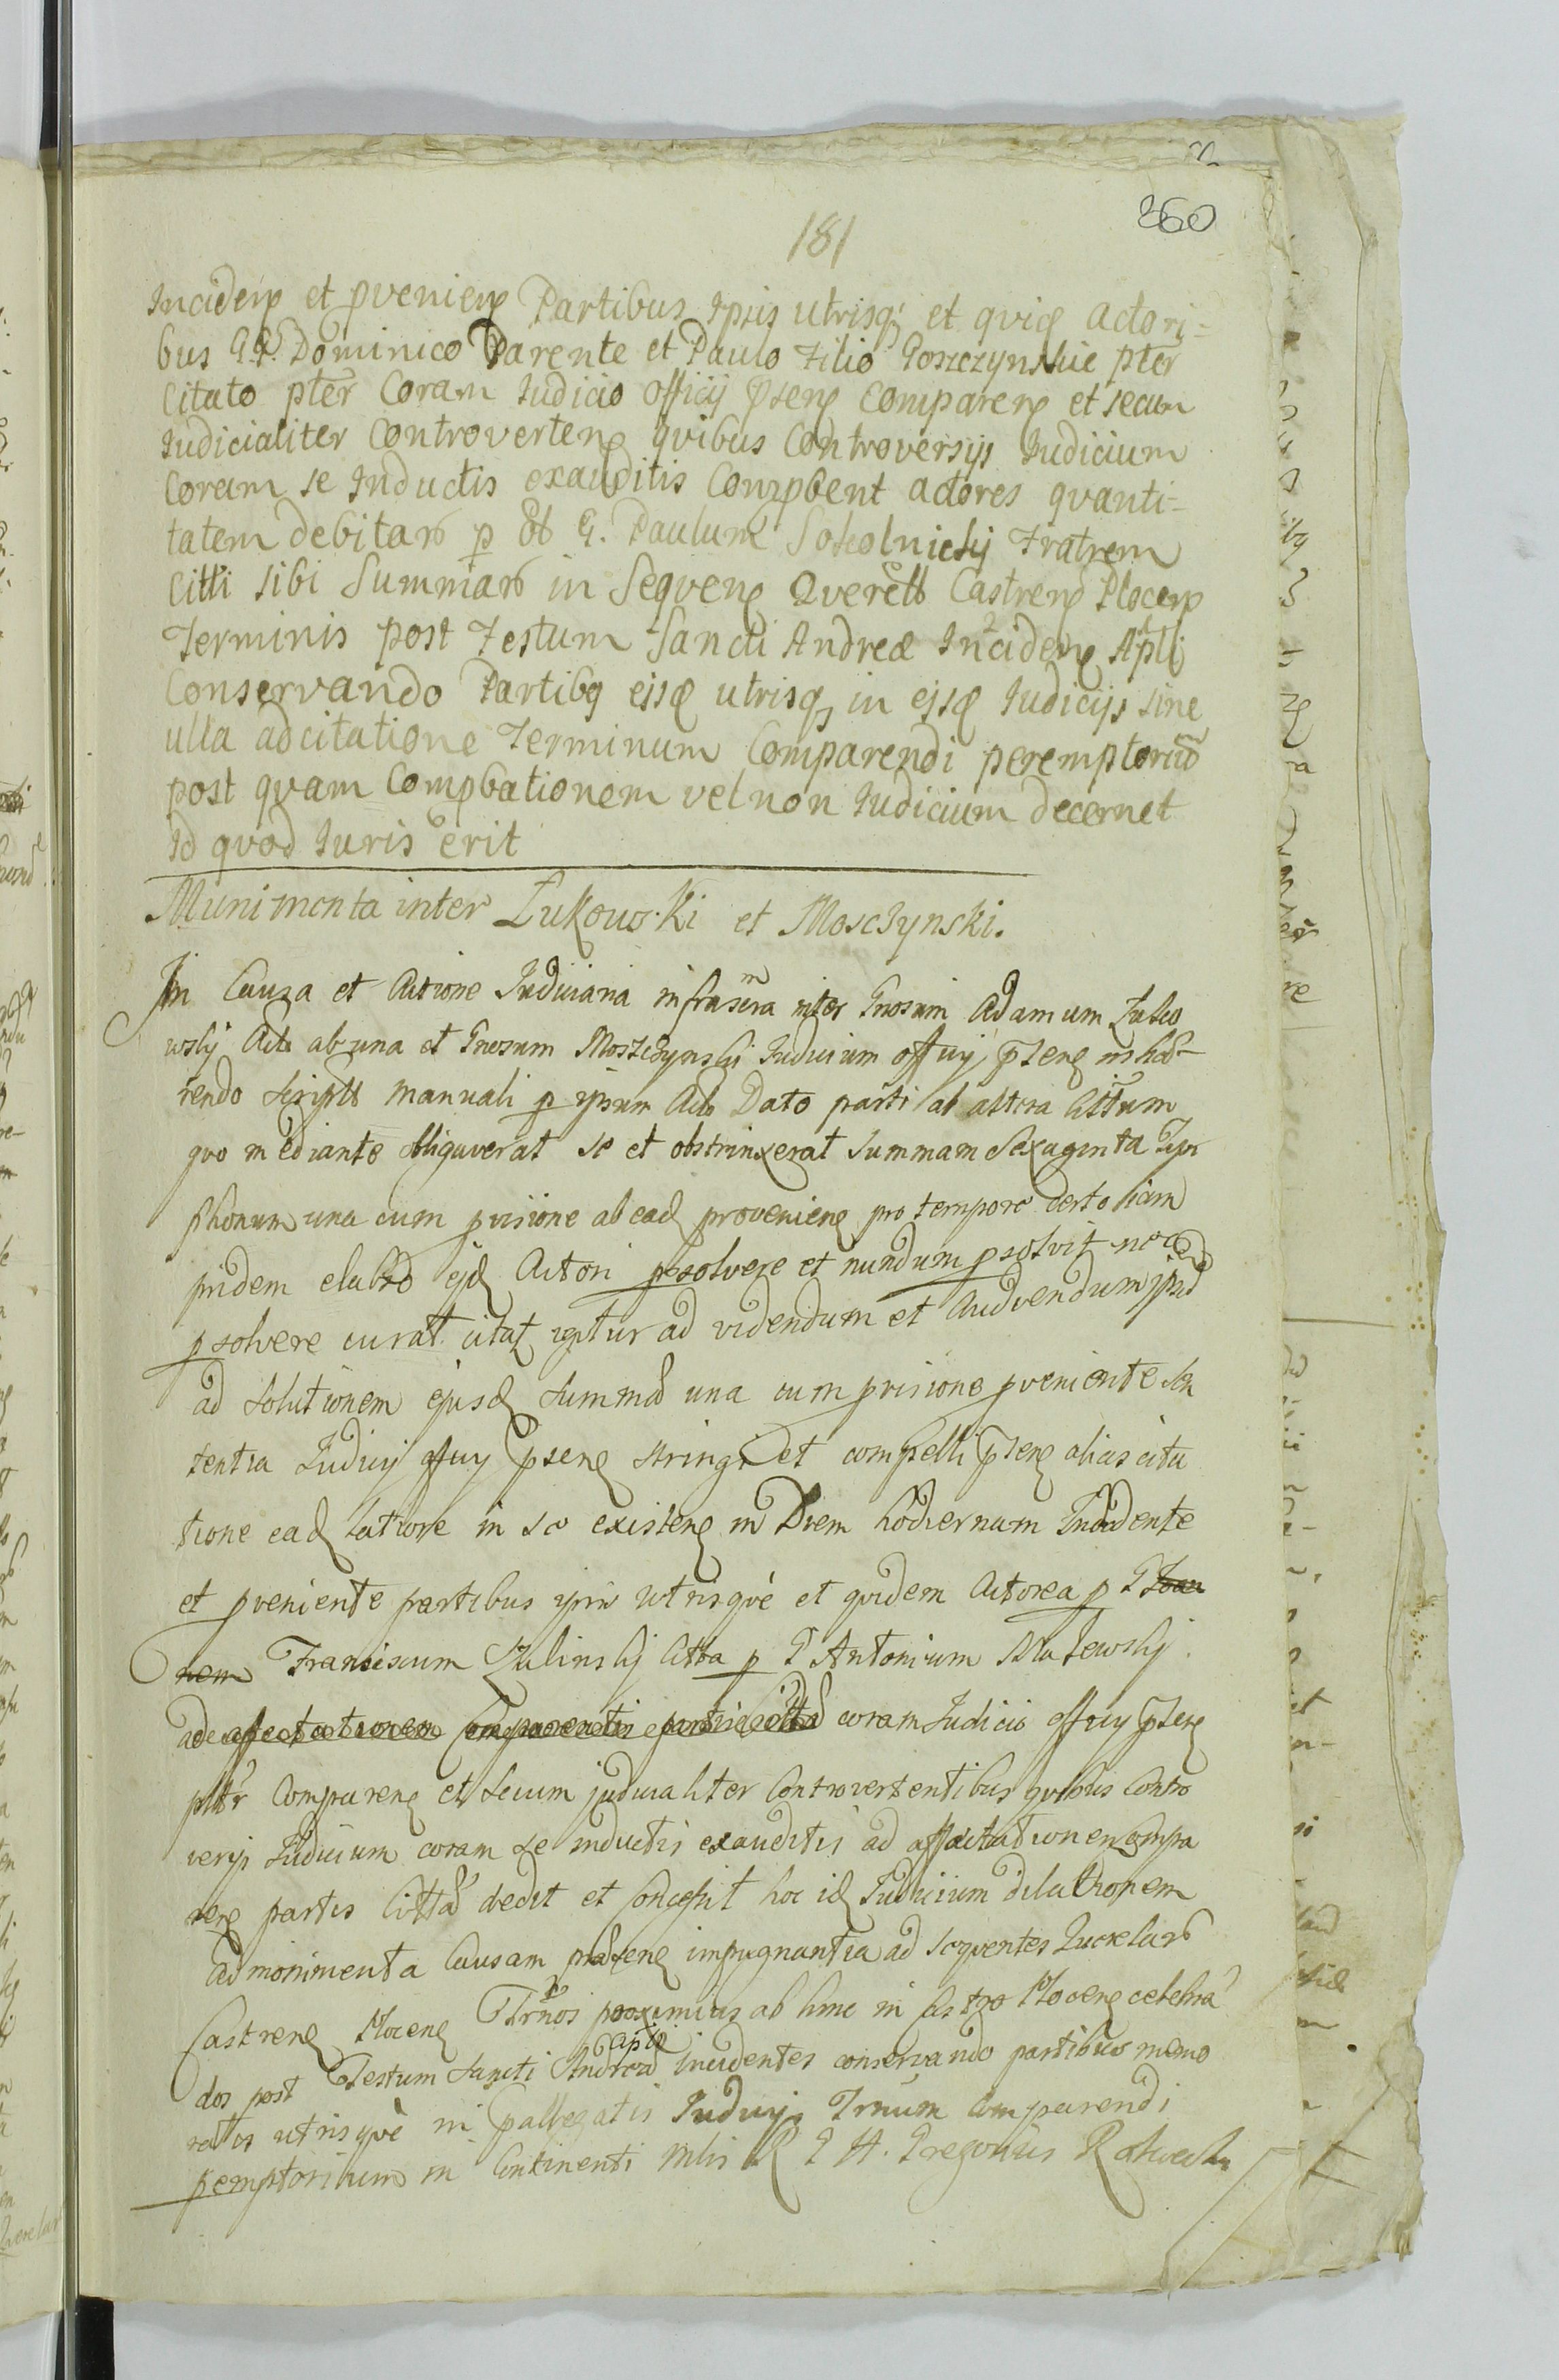 360
181
Inciden et pvenien Partibus Ipsis utrisq; et quid Actori-
bus G. G. Dominico Parente et Paulo Filio Goszczynskie pter
Citato pter Coram Iudicio Officij psen Comparen et secum
Iudicialiter Controverten quibus Controversijs Iudicium
Coram se Inductis exauditis Compbent actores quanti-
tatem debitam p G. Paulum Sokolnicky Fratrem
Citti sibi Summam in Sequen Querell Castren Plocen
Terminis post Festum Sancti Andreæ Inciden Apli
Conservando Partibq ejsd utrisq, in ejsd Iudicijs sine
ulla adcitatione Terminum Comparendi peremptorium
post quam Compbationem vel non Iudicium decernet
Id quod Iuris erit
Munimenta inter Łukowski et Moszczynski.
In Causa et Actione Iudiciaria infrascra inter Gnosum Adamum Łuko
wskij Acto ab una et Gnosum Moszczynski Iudicium officij psen inhæ-
rendo scripto manuali p ipsum Dato parti ab altera Cittum
quo mediante obligaverat se et obstrinxerat summam Sexaginta
una cum pvisione ab ead provenien pro tempore certo iam
pridem elabso ejd Actori psolvere et nundum psolvit nec
psolvere curat citat igitur ad videndum et Audiendum
ad solutionem ejusd summæ una cum prisione pveniente Sen
tentia Iudicij officij psen stringi et compelli psen alias cita
tione ead latiore in se existen in Diem hodiernum Incidente
et pveniente partibus ipsis utrisquè et quidem Actorea p G
nem Franciscum Zulinskij Citta p G Antonium
ad affectationem Comparentis partis Cittæ coram Iudicio officij psen
pter Comparen et secum judicialiter Controvertentibus quibus Contro
versijs Iudicium coram se inductis exauditis ad affectationem Compa
ren partis Cittæ dedit et Concessit hoc id Iudicium dilationem
ad monimenta Causam præsen impugnantia ad sequentes Querelas
Castren Plocen Trnos proximius ab hinc in Castro Plocen celebra
dos post Festum Sancti Andreæ Apli Incidentes conservando partibus memo
ratis utrisquè in pallegatis Iudicijs Trnum Comparendi
pemptorium in Continenti Mlis R G H. Gregorius